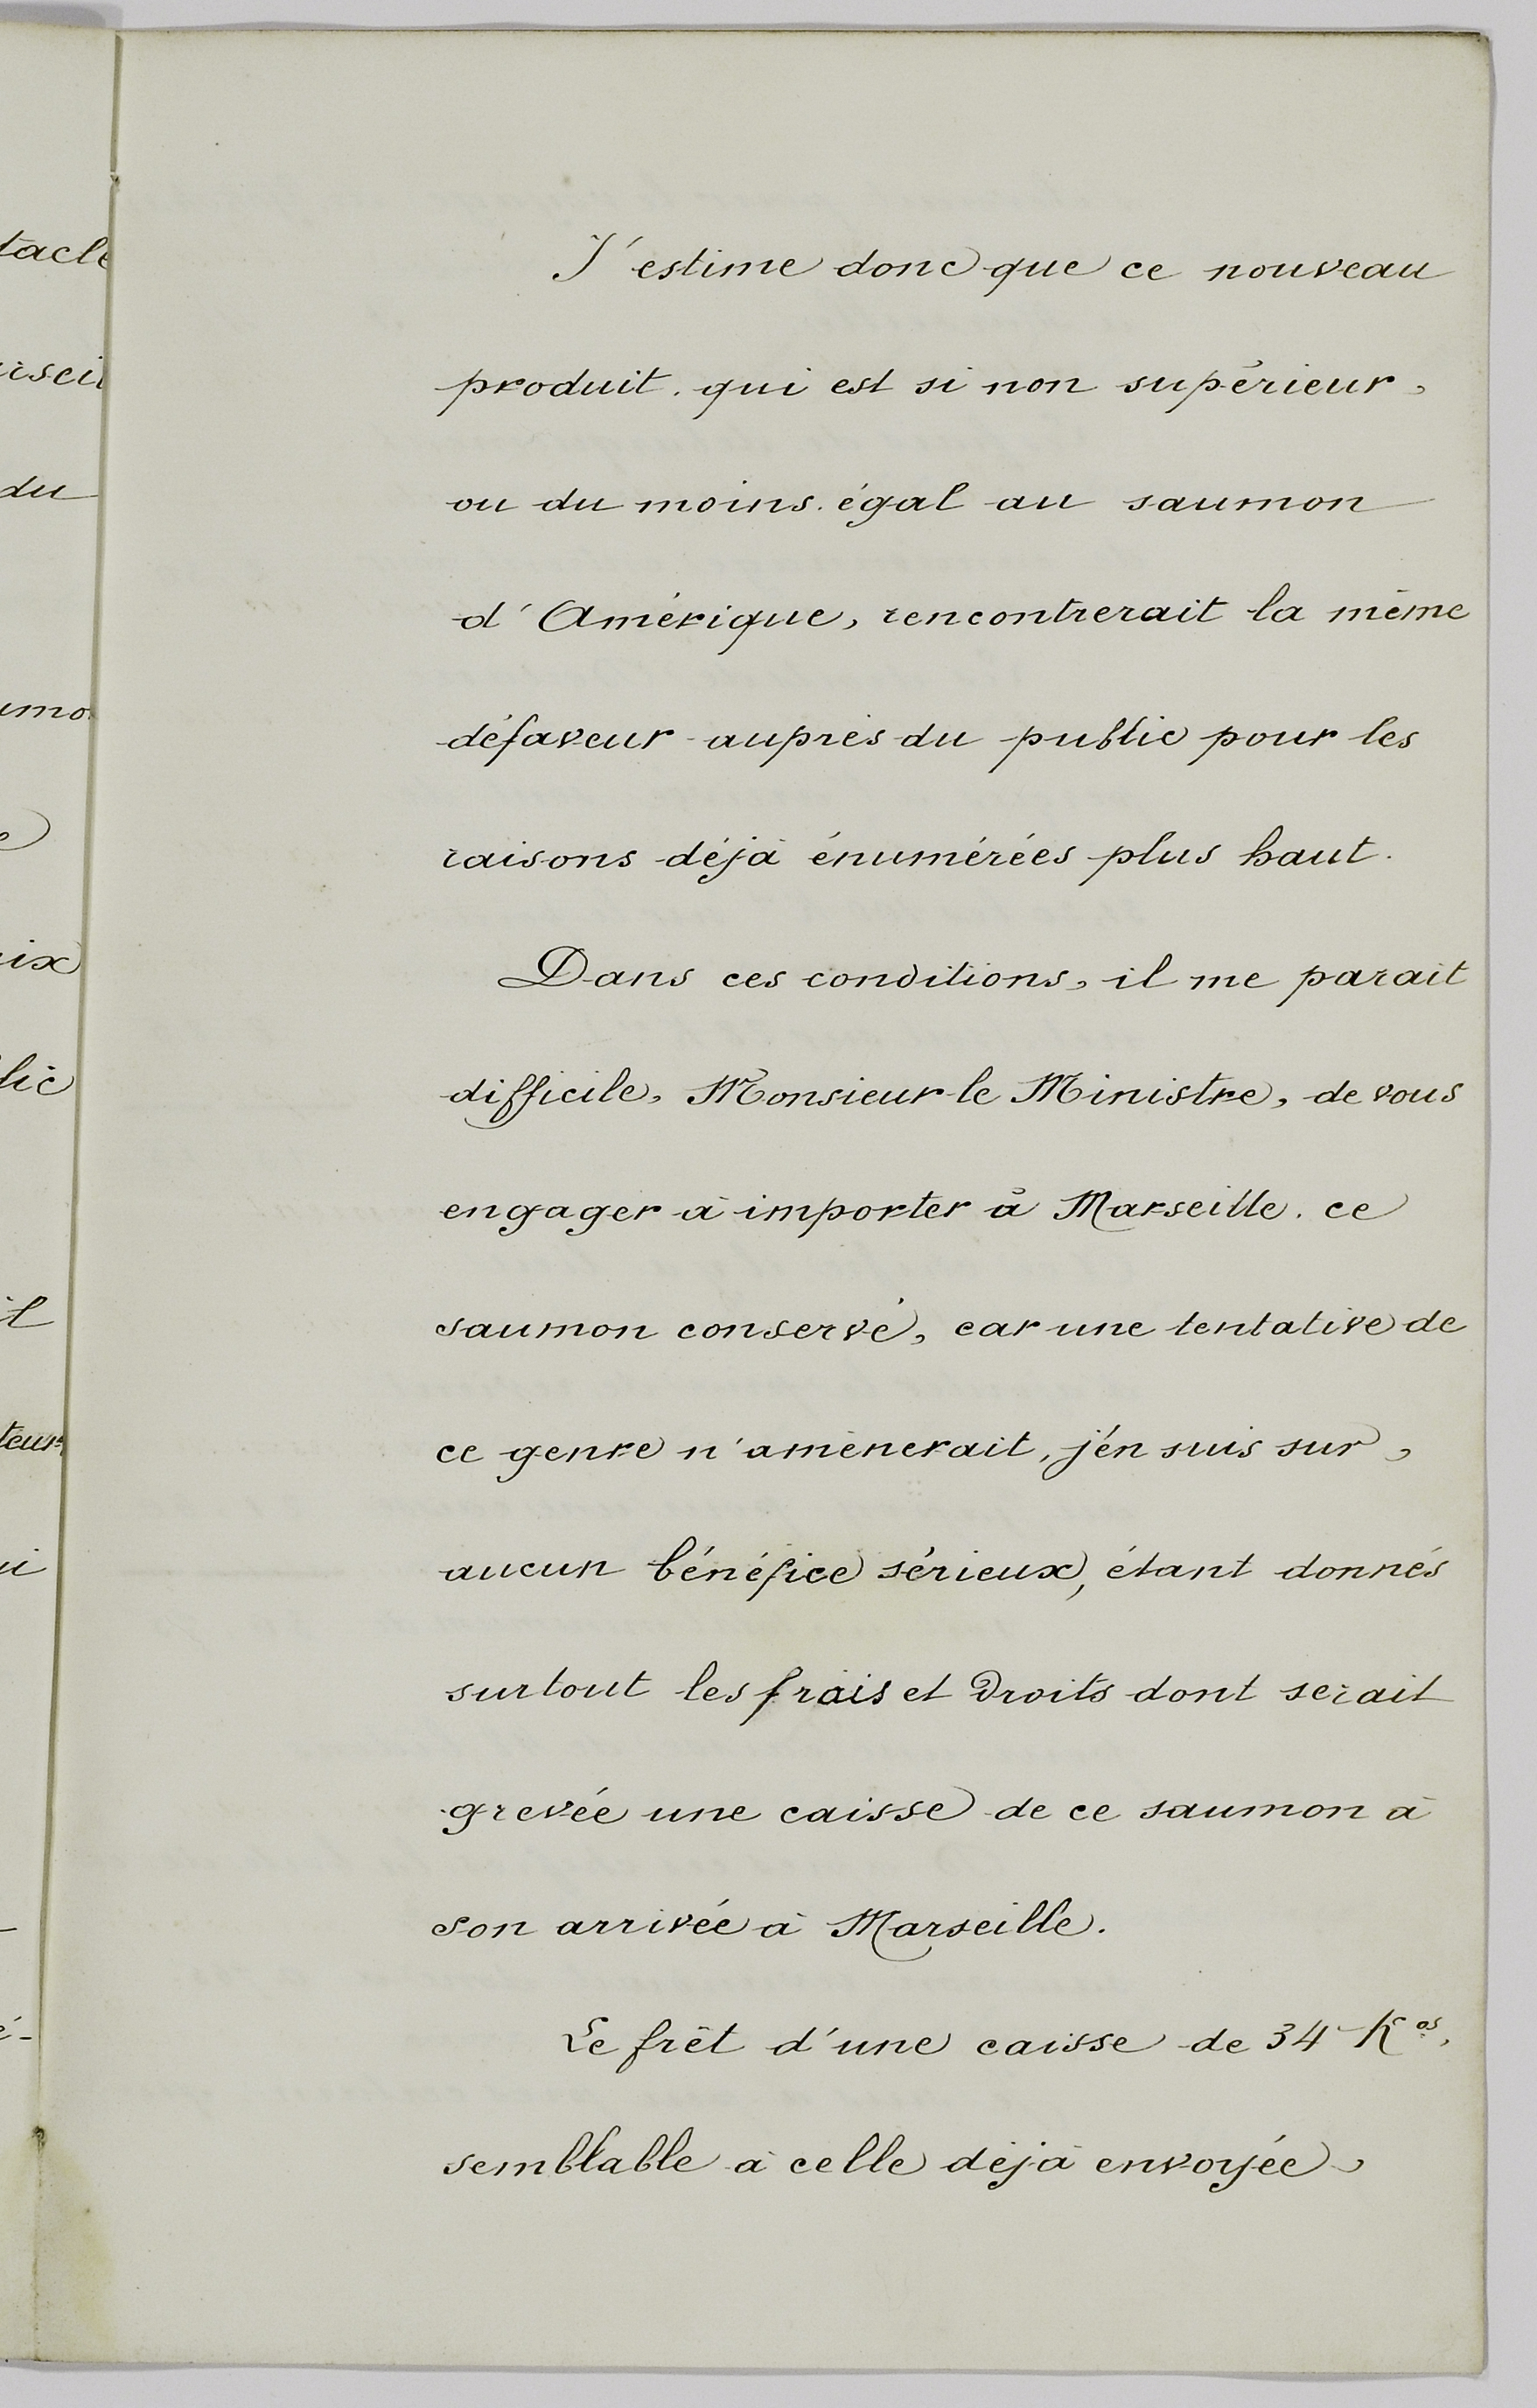 J'estime donc que ce nouveau
produit, qui est si non supérieur,
ou du moins égal au saumon
d'Amérique, rencontrerait la même
défaveur auprès du public pour les
raisons déjà énumérées plus haut.
Dans ces conditions, il me parait
difficile, Monsieur le Ministre, de vous
engager à importer à Marseille, ce
saumon conservé, car une tentative de
ce genre n'amènerait, j'en suis sur,
aucun bénéfice sérieux, étant donnés
surtout les frais et droits dont serait
grevée une caisse de ce saumon à
son arrivée à Marseille.
Le frêt d'une caisse de 34 Kos,
semblable à celle déjà envoyée,